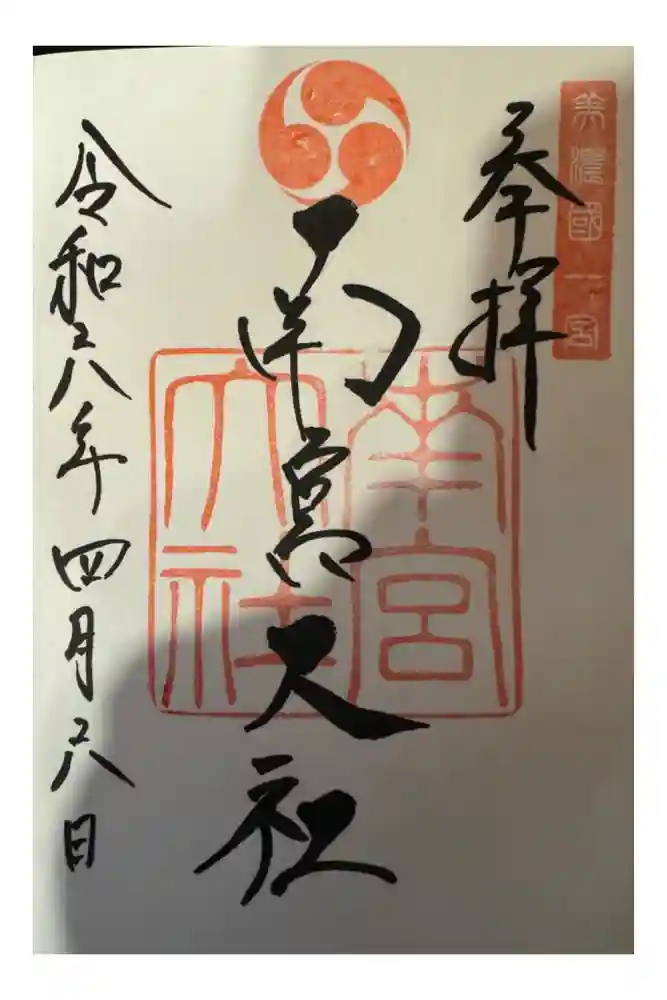 美濃國一宮
奉拝
南宮大社
南宮
大社
令和六年四月六日